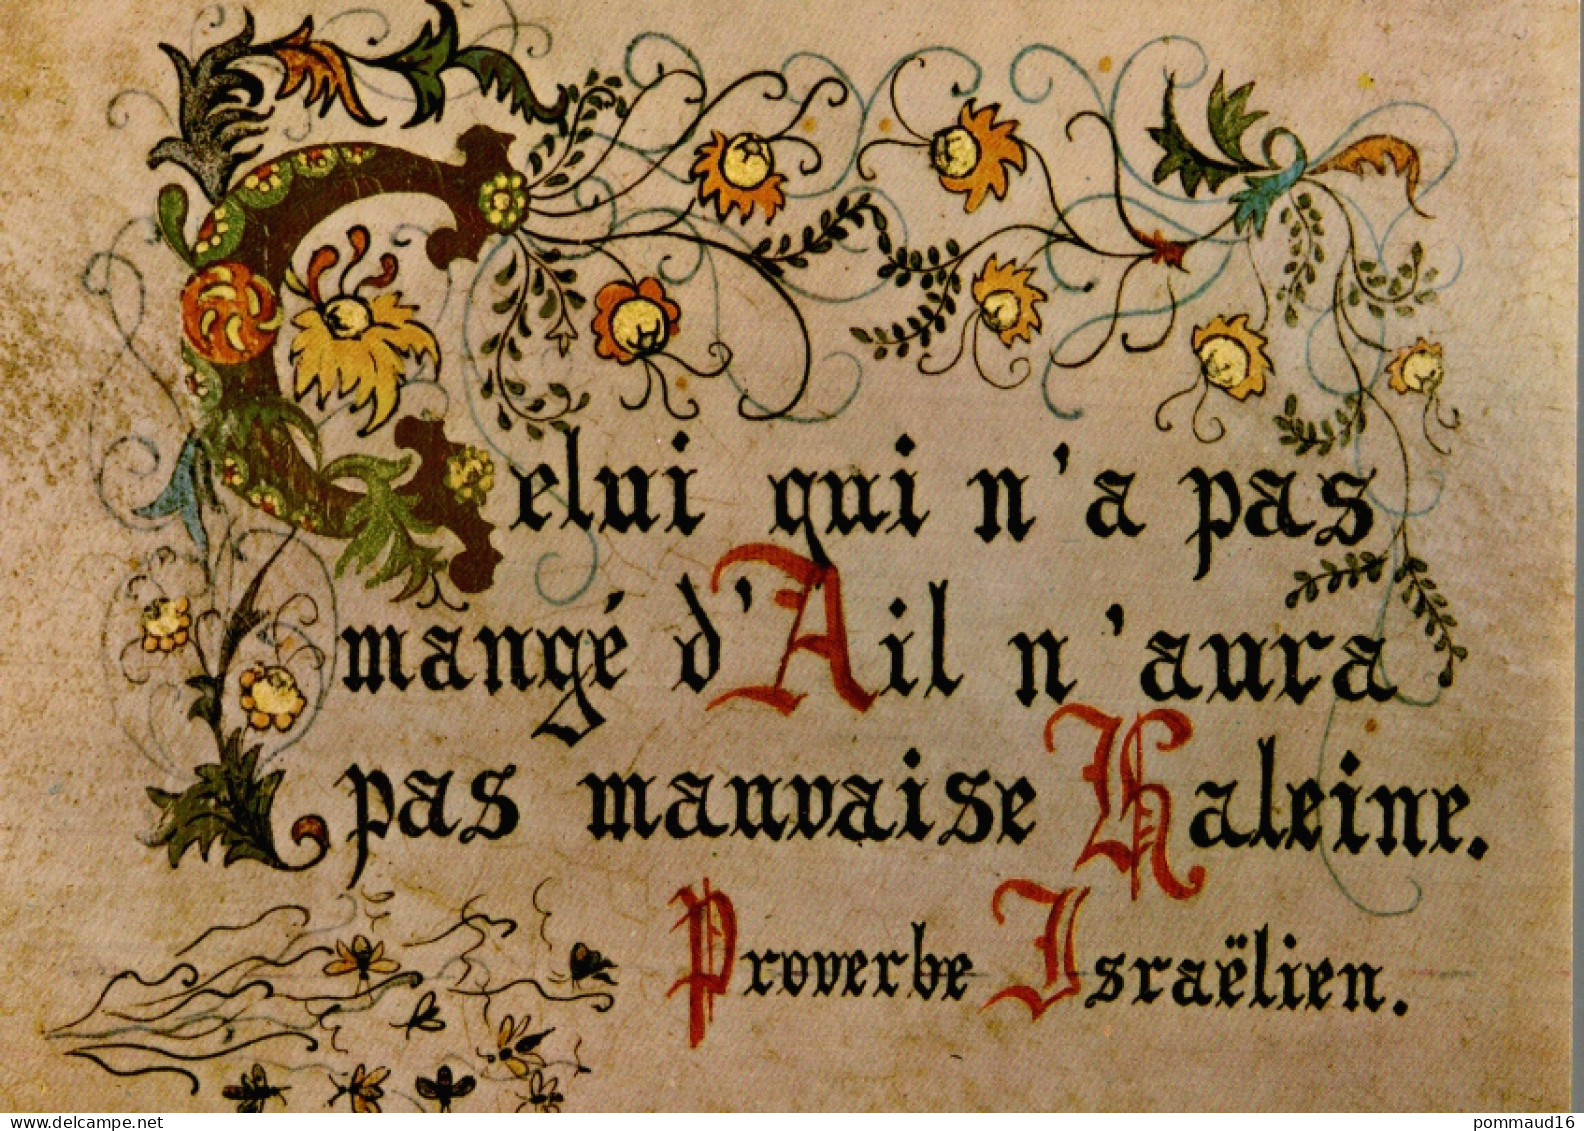 Celui qui n'a pas
mangé d'Ail n'aura
pas mauvaise Haleine.
Proverbe Israëlien.
www.delcampe.net
pommaud16